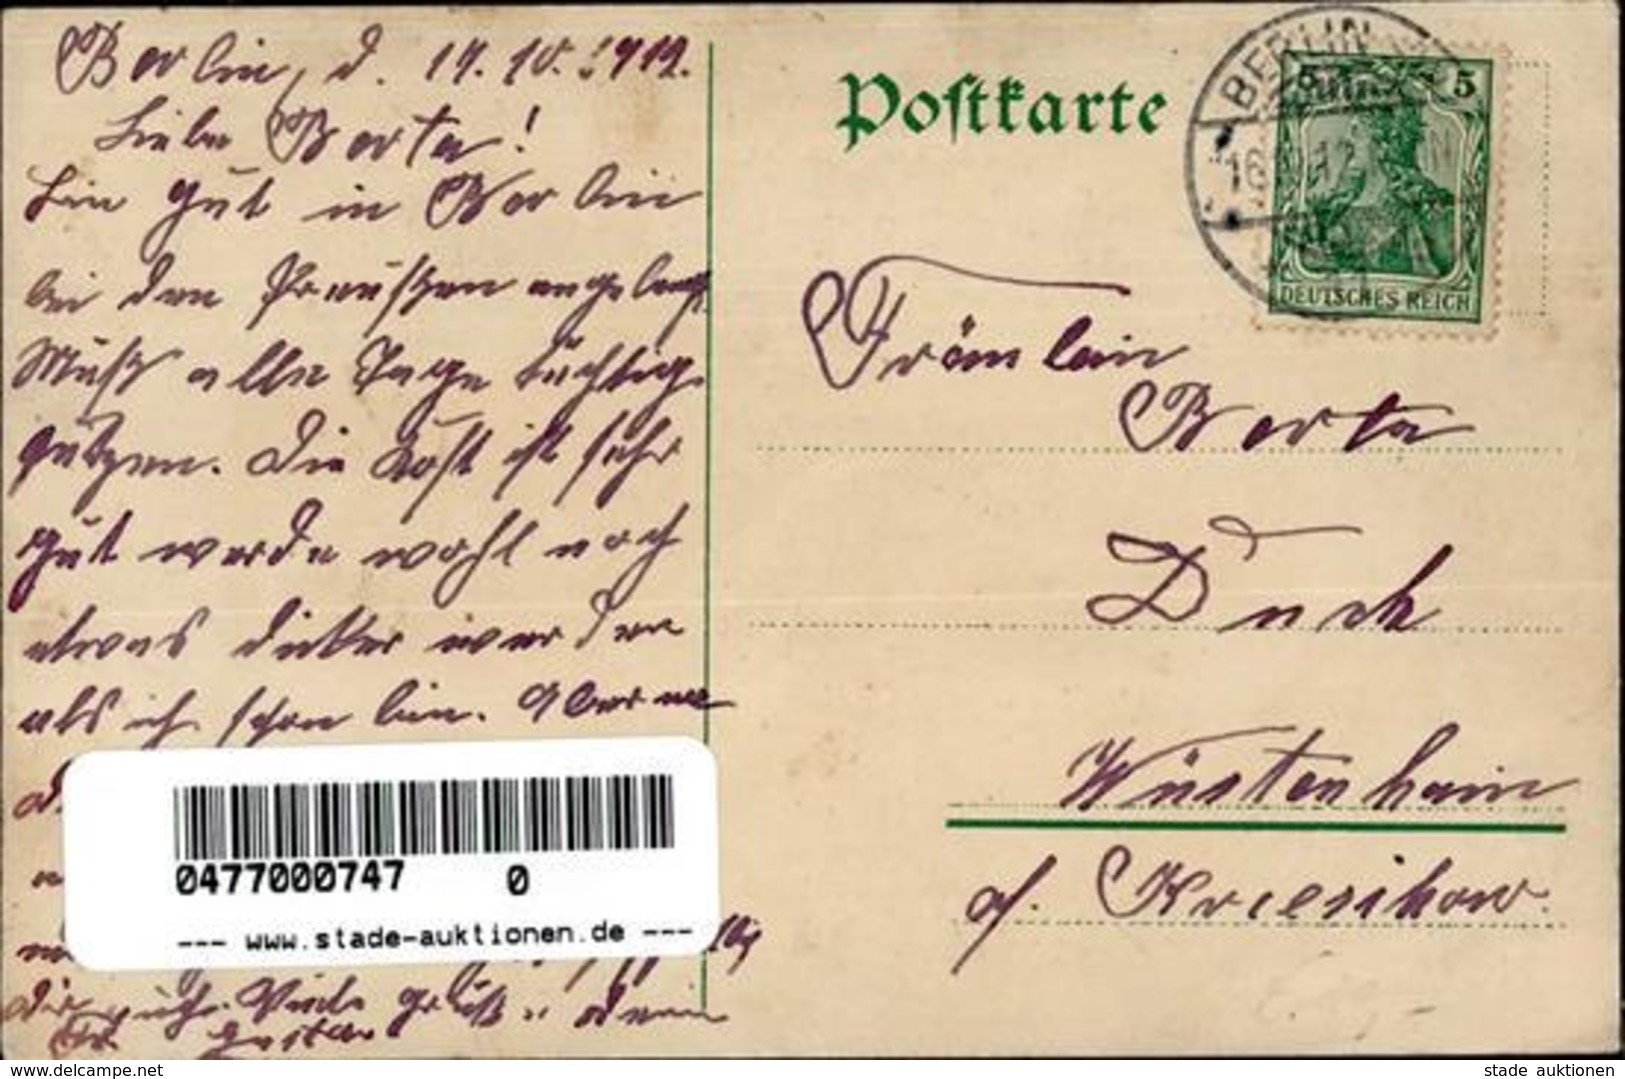 Berlin, d. 14. 10. 1912.
Liebe Berta!
Bin gut in Berlin
bei den Preußen angelangt.
Muß alle Tage tüchtig
putzen. Die Kost ist sehr
gut werde wohl noch
etwas dicker werden
als ich schon bin. Aber
Viele Grüße
Postkarte
BERLIN
16. 12
5 5
DEUTSCHES REICH
Fräulein
Berta
Duck
Wüstenhain
p. Krieschow.
0477000747 0
--- www.stade-auktionen.de ---
www.delcampe.net
stade auktionen